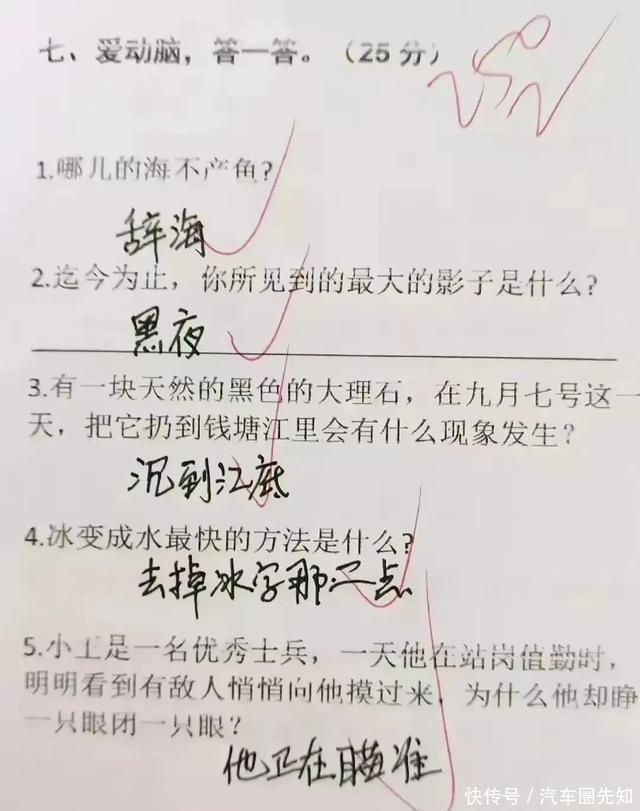 七、爱动脑，答一答。（25分）
1.哪儿的海不产鱼？
辞海
2.迄今为止，你所见到的最大的影子是什么？
黑夜
3.有一块天然的黑色的大理石，在九月七号这一
天，把它扔到钱塘江里会有什么现象发生？
沉到江底
4.冰变成水最快的方法是什么？
去掉冰字那二点
5.小王是一名优秀士兵，一天他在站岗值勤时，
明明看到有敌人悄悄向他摸过来，为什么他却睁
一只眼闭一只眼？
他正在瞄准
快传号／汽车圈先知